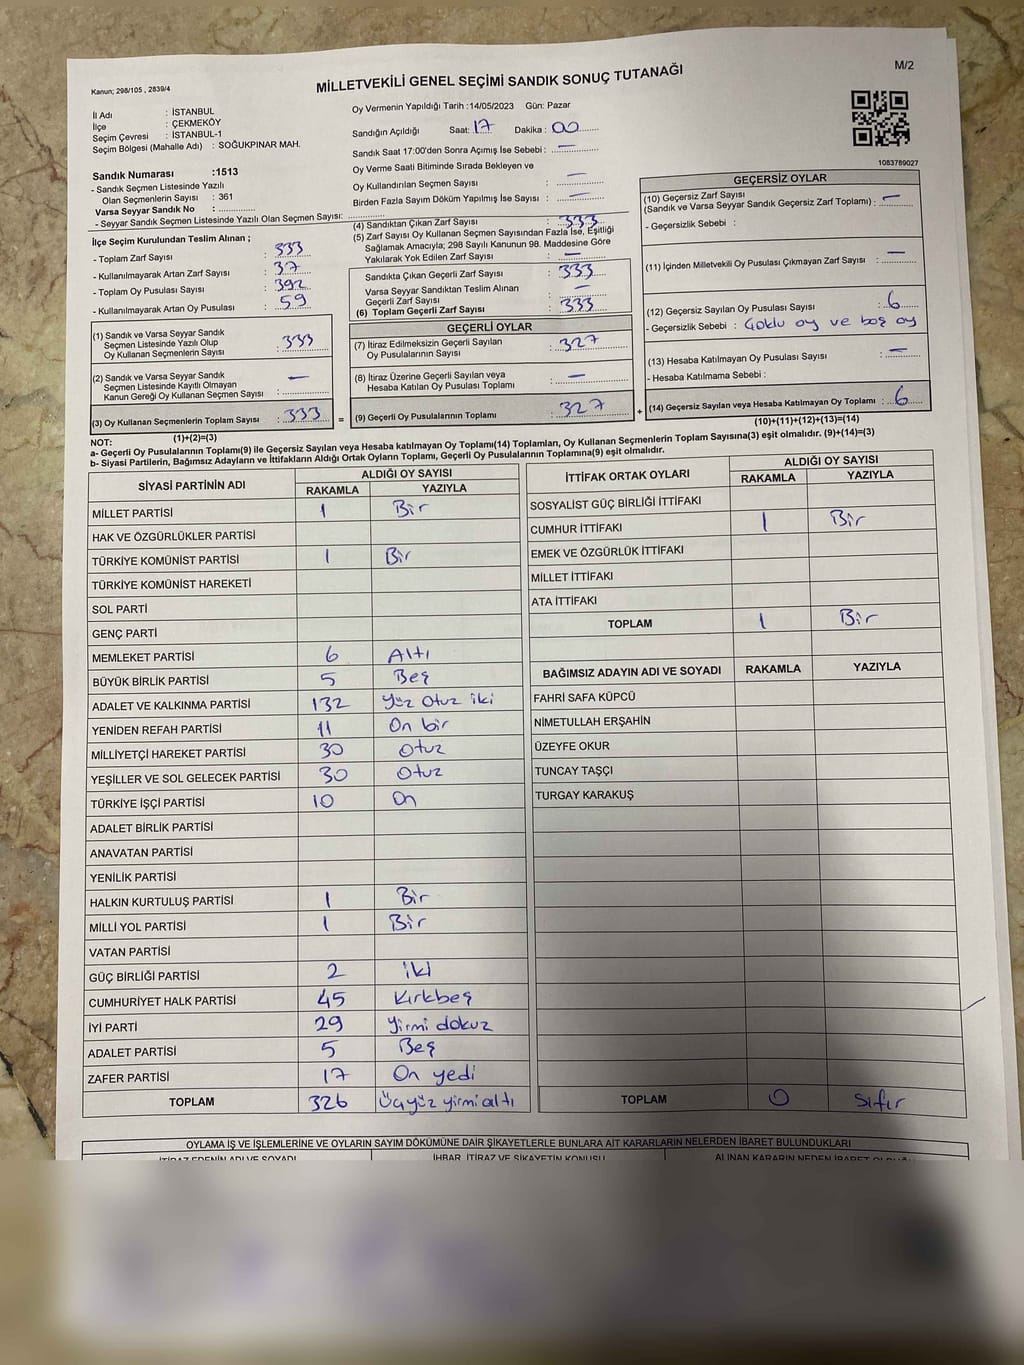 M/2
Kanun; 298/105 , 2839/4
MİLLETVEKİLİ GENEL SEÇİMİ SANDIK SONUÇ TUTANAĞI
İl Adı : İSTANBUL
İlçe : ÇEKMEKÖY
Seçim Çevresi : İSTANBUL-1
Seçim Bölgesi (Mahalle Adı) : SOĞUKPINAR MAH.
Sandık Numarası :1513
- Sandık Seçmen Listesinde Yazılı
Olan Seçmenlerin Sayısı : 361
Varsa Seyyar Sandık No : ..............
- Seyyar Sandık Seçmen Listesinde Yazılı Olan Seçmen Sayısı: ..............
Oy Vermenin Yapıldığı Tarih :14/05/2023 Gün: Pazar
Sandığın Açıldığı Saat: 17 Dakika : 00
Sandık Saat 17:00'den Sonra Açımış İse Sebebi : —
Oy Verme Saati Bitiminde Sırada Bekleyen ve
Oy Kullandırılan Seçmen Sayısı : —
Birden Fazla Sayım Döküm Yapılmış İse Sayısı : —
1083789027
İlçe Seçim Kurulundan Teslim Alınan ;
- Toplam Zarf Sayısı : 333
- Kullanılmayarak Artan Zarf Sayısı : 37
- Toplam Oy Pusulası Sayısı : 392
- Kullanılmayarak Artan Oy Pusulası : 59
(1) Sandık ve Varsa Seyyar Sandık
Seçmen Listesinde Yazılı Olup
Oy Kullanan Seçmenlerin Sayısı : 333
(2) Sandık ve Varsa Seyyar Sandık
Seçmen Listesinde Kayıtlı Olmayan
Kanun Gereği Oy Kullanan Seçmen Sayısı : —
(3) Oy Kullanan Seçmenlerin Toplam Sayısı : 333 =
(1)+(2)=(3)
(4) Sandıktan Çıkan Zarf Sayısı : 333
(5) Zarf Sayısı Oy Kullanan Seçmen Sayısından Fazla İse, Eşitliği
Sağlamak Amacıyla; 298 Sayılı Kanunun 98. Maddesine Göre
Yakılarak Yok Edilen Zarf Sayısı : —
Sandıkta Çıkan Geçerli Zarf Sayısı : 333
Varsa Seyyar Sandıktan Teslim Alınan
Geçerli Zarf Sayısı : —
(6) Toplam Geçerli Zarf Sayısı : 333
GEÇERLİ OYLAR
(7) İtiraz Edilmeksizin Geçerli Sayılan
Oy Pusulalarının Sayısı : 327
(8) İtiraz Üzerine Geçerli Sayılan veya
Hesaba Katılan Oy Pusulası Toplamı : —
(9) Geçerli Oy Pusulalarının Toplamı : 327 +
GEÇERSİZ OYLAR
(10) Geçersiz Zarf Sayısı
(Sandık ve Varsa Seyyar Sandık Geçersiz Zarf Toplamı) : —
- Geçersizlik Sebebi :
(11) İçinden Milletvekili Oy Pusulası Çıkmayan Zarf Sayısı : —
(12) Geçersiz Sayılan Oy Pusulası Sayısı : 6
- Geçersizlik Sebebi : Çoklu oy ve boş oy
(13) Hesaba Katılmayan Oy Pusulası Sayısı : —
- Hesaba Katılmama Sebebi :
(14) Geçersiz Sayılan veya Hesaba Katılmayan Oy Toplamı : 6
(10)+(11)+(12)+(13)=(14)
NOT:
a- Geçerli Oy Pusulalarının Toplamı(9) ile Geçersiz Sayılan veya Hesaba katılmayan Oy Toplamı(14) Toplamları, Oy Kullanan Seçmenlerin Toplam Sayısına(3) eşit olmalıdır. (9)+(14)=(3)
b- Siyasi Partilerin, Bağımsız Adayların ve İttifakların Aldığı Ortak Oyların Toplamı, Geçerli Oy Pusulalarının Toplamına(9) eşit olmalıdır.
SİYASİ PARTİNİN ADI ALDIĞI OY SAYISI
RAKAMLA YAZIYLA
MİLLET PARTİSİ 1 Bir
HAK VE ÖZGÜRLÜKLER PARTİSİ
TÜRKİYE KOMÜNİST PARTİSİ 1 Bir
TÜRKİYE KOMÜNİST HAREKETİ
SOL PARTİ
GENÇ PARTİ
MEMLEKET PARTİSİ 6 Altı
BÜYÜK BİRLİK PARTİSİ 5 Beş
ADALET VE KALKINMA PARTİSİ 132 Yüz otuz iki
YENİDEN REFAH PARTİSİ 11 On bir
MİLLİYETÇİ HAREKET PARTİSİ 30 Otuz
YEŞİLLER VE SOL GELECEK PARTİSİ 30 Otuz
TÜRKİYE İŞÇİ PARTİSİ 10 On
ADALET BİRLİK PARTİSİ
ANAVATAN PARTİSİ
YENİLİK PARTİSİ
HALKIN KURTULUŞ PARTİSİ 1 Bir
MİLLİ YOL PARTİSİ 1 Bir
VATAN PARTİSİ
GÜÇ BİRLİĞİ PARTİSİ 2 iki
CUMHURİYET HALK PARTİSİ 45 Kırkbeş
İYİ PARTİ 29 Yirmi dokuz
ADALET PARTİSİ 5 Beş
ZAFER PARTİSİ 17 On yedi
TOPLAM 326 Üçyüz yirmi altı
İTTİFAK ORTAK OYLARI ALDIĞI OY SAYISI
RAKAMLA YAZIYLA
SOSYALİST GÜÇ BİRLİĞİ İTTİFAKI
CUMHUR İTTİFAKI 1 Bir
EMEK VE ÖZGÜRLÜK İTTİFAKI
MİLLET İTTİFAKI
ATA İTTİFAKI
TOPLAM 1 Bir
BAĞIMSIZ ADAYIN ADI VE SOYADI RAKAMLA YAZIYLA
FAHRİ SAFA KÜPCÜ
NİMETULLAH ERŞAHİN
ÜZEYFE OKUR
TUNCAY TAŞÇI
TURGAY KARAKUŞ
TOPLAM 0 Sıfır
OYLAMA İŞ VE İŞLEMLERİNE VE OYLARIN SAYIM DÖKÜMÜNE DAİR ŞİKAYETLERLE BUNLARA AİT KARARLARIN NELERDEN İBARET BULUNDUKLARI
İTİRAZ EDENİN ADI VE SOYADI İHBAR, İTİRAZ VE ŞİKAYETİN KONUSU ALINAN KARARIN NEDEN İBARET OLDUĞU